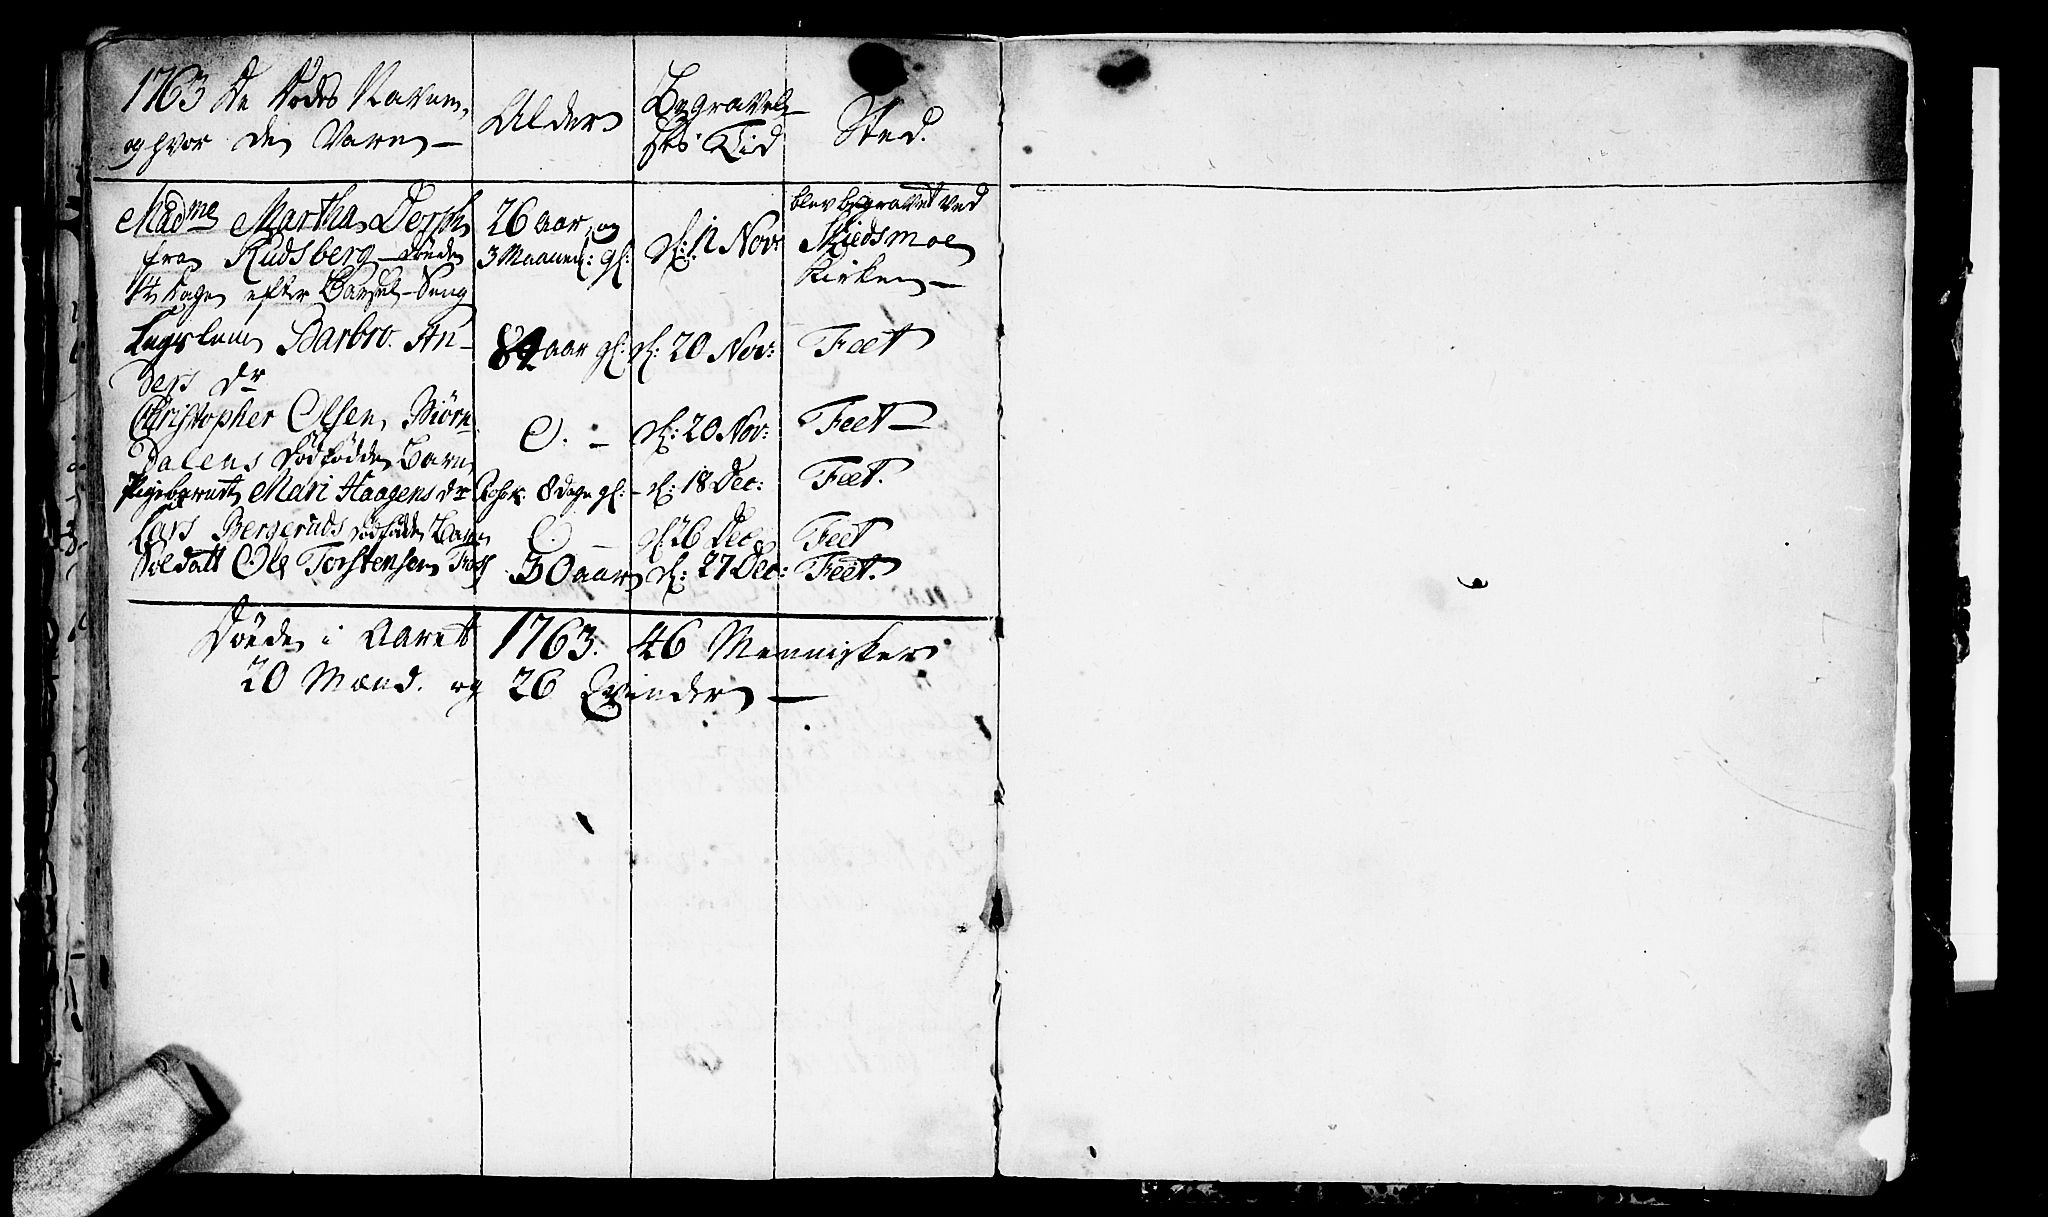 1763 De Dødes Navne,
og hvor de Vare –
Alder
Begravel-
ses Tid
Sted.
Madme Martha Dorph
fra Rudsberg – døde
14 dage efter Barsel-Seng
26 aar, og
3 Maaneder: gl:
d: 12 Nov:
blev begravet ved
Skiedsmoe
Kirken –
Barbro An-
ders dr
84 aar gl:
d: 20 Nov:
Feet
Christopher Olsen Biørn
dalens dødfødde Barn
0. –
d: 20 Nov:
Feet –
Pigebarnet Mari Haagens dr
8 dage gl: –
d: 18 Dec:
Feet.
Lars Bergeruds dødfødde Barn
0.
d: 26 Dec
Feet
Soldatt Ole Torstensen
30 aar
d: 27 Dec:
Feet.
Døde i Aaret 1763. 46 Mennisker
20 Mænd. og 26 Qvinder –